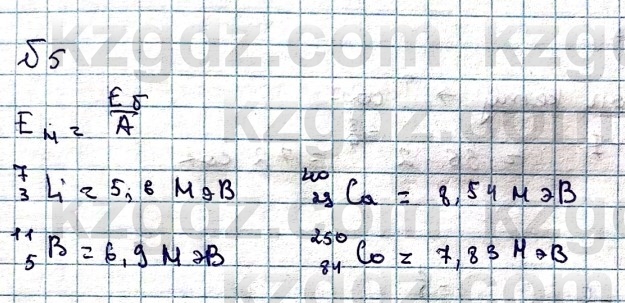 №5
Eм = Eб/A
⁷₃Li = 5,6 МэВ
⁴⁰₂₉Ca = 8,54 МэВ
¹¹₅B = 6,9 МэВ
²⁵⁰₈₄Co = 7,83 МэВ
kzgdz.com